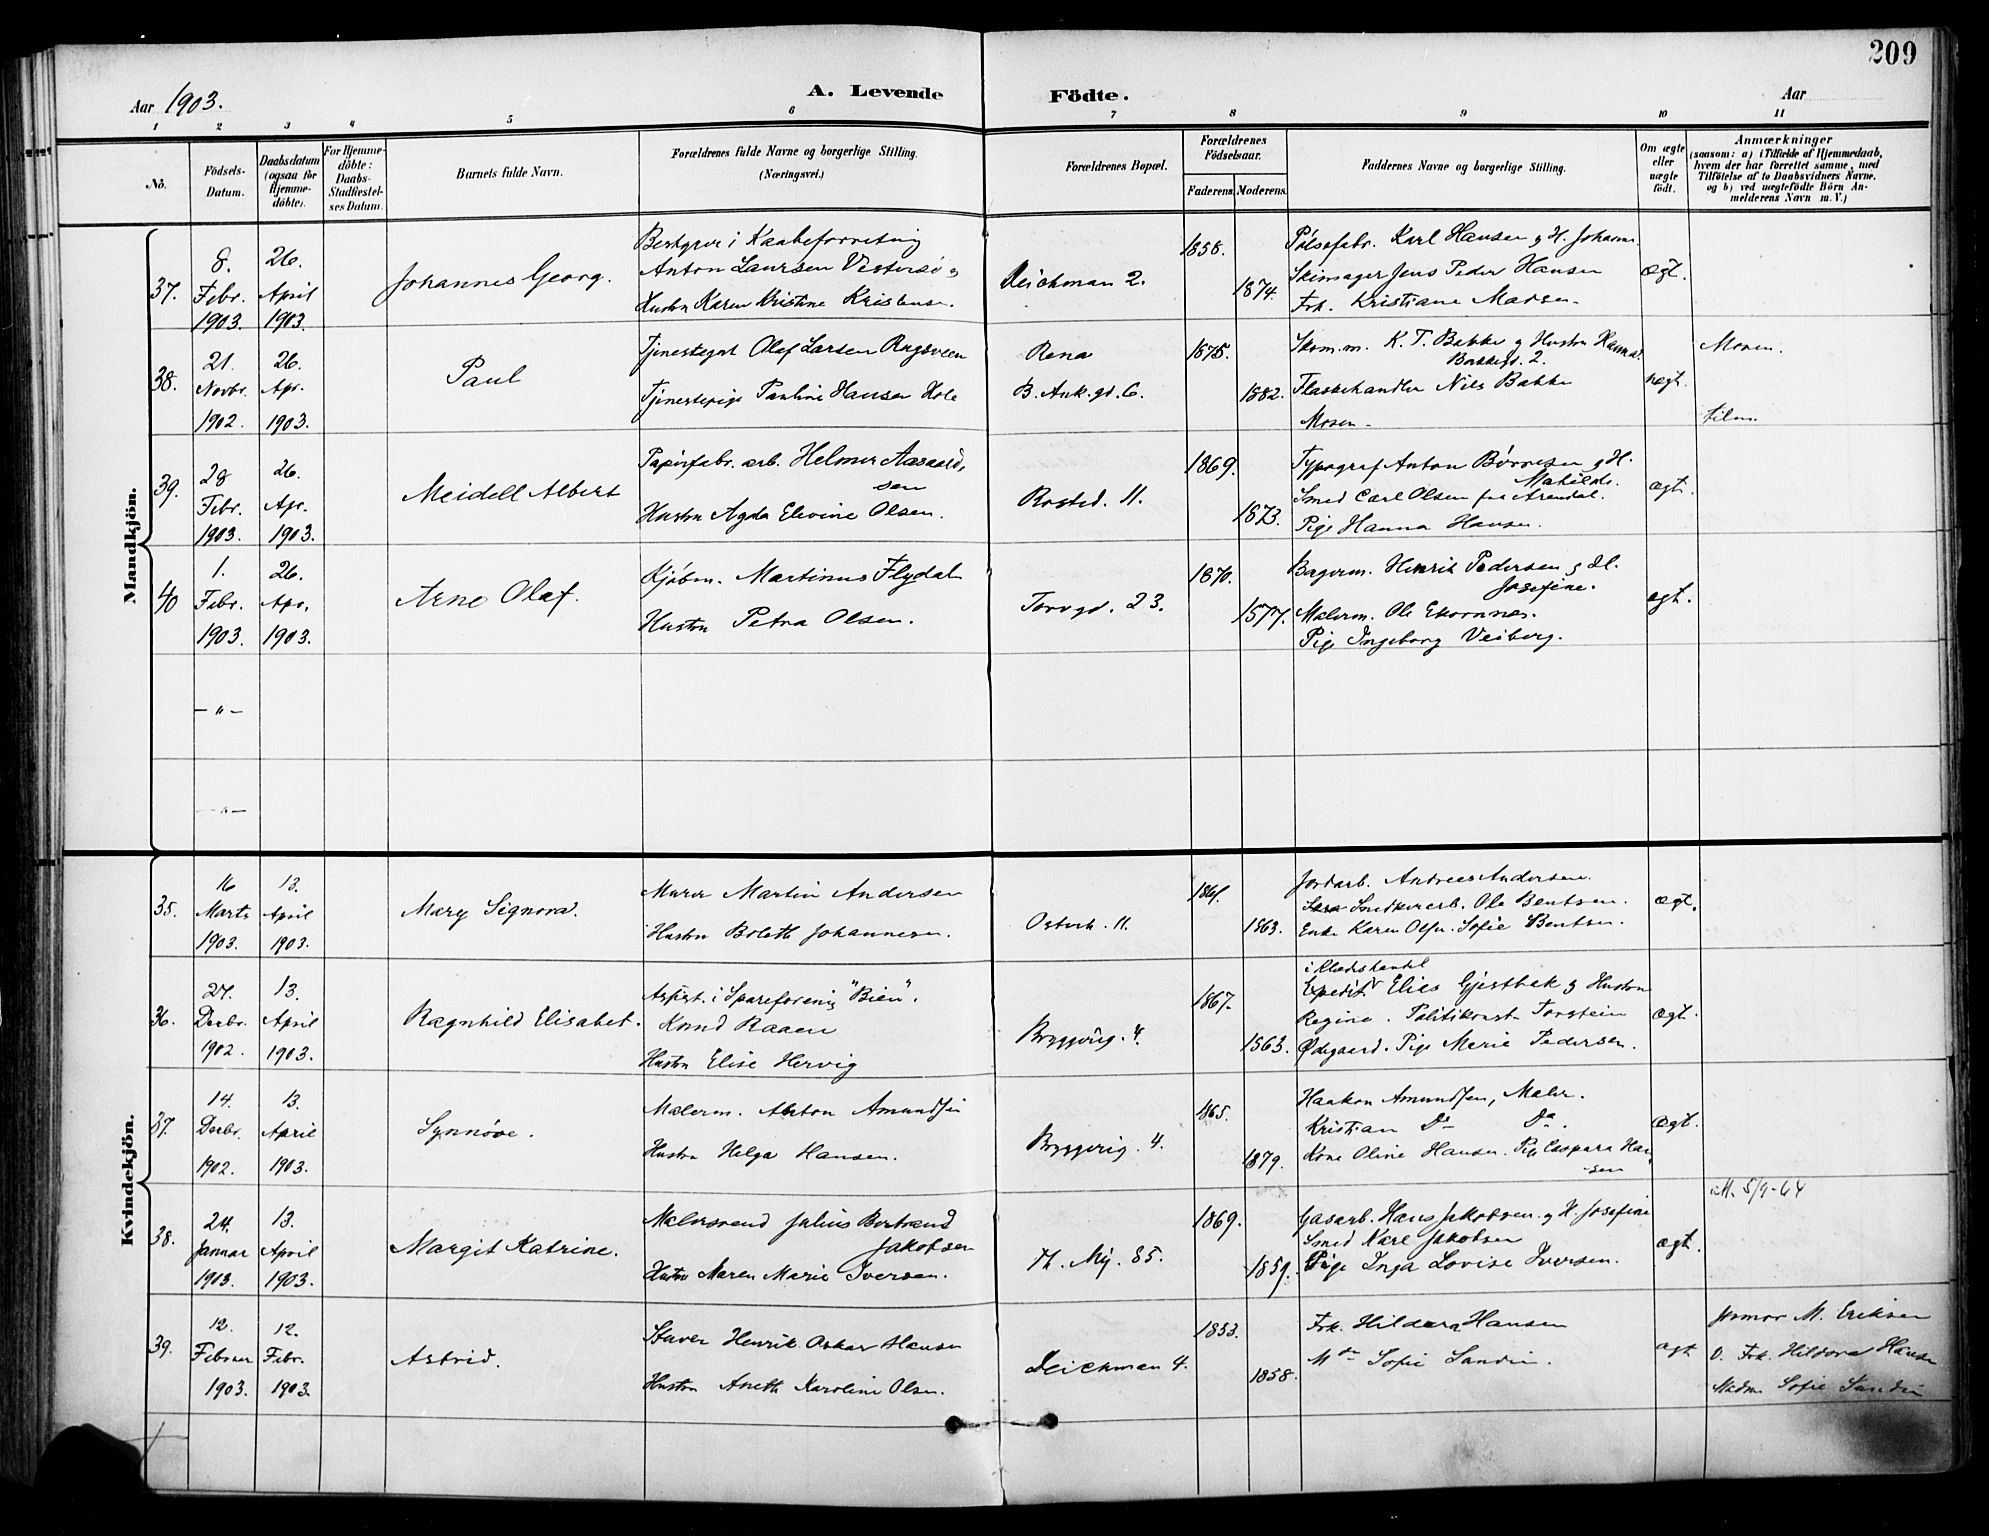 209
Aar 1903.
A. Levende Födte.
Aar
1 2 3 4 5 6 7 8 9 10 11
No.
Födsels-Datum.
Daabsdatum (ogsaa for Hjemme-döbte).
For Hjemme-döbte: Daabs-Stadfæstel-ses Datum.
Barnets fulde Navn.
Forældrenes fulde Navne og borgerlige Stilling.
(Næringsvei.)
Forældrenes Bopæl.
Forældrenes Födselsaar.
Faderens. Moderens.
Faddernes Navne og borgerlige Stilling.
Om ægte eller uægte födt.
Anmærkninger
(saasom: a) i Tilfælde af Hjemmedaab,
hvem der har forrettet samme, med
Tilföielse af to Daabsvidners Navne,
og b) ved uægtefödte Börn An-
melderens Navn m. V.)
Mandkjön.
37.
8. Febr. 1903.
26. April 1903.
Johannes Georg.
Anton Laursen Vestersö og
Hustru Karen Kristine Kristensen.
Deichman 2.
1858.
1874.
Pölsefabr. Karl Hansen og H. Johanne
Skimager Jens Peder Hansen
Frk. Kristiane Madsen.
ægt.
38.
21. Novbr. 1902.
26. Apr. 1903.
Paul
Tjenestegut Olaf Larsen Rugsveen
Tjenestepige Pauline Hansen Hole
Rena
B. Ank. gd. 6.
1875.
1882.
Skom. m. K. T. Bakke og Hustru Hanna
2.
Flaskehandler Nils Bakke
Moren.
uægt.
Moren.
tilm.
39.
28 Febr. 1903.
26. Apr. 1903.
Meidell Albert
Papirfabr. arb. Helmer
sen
Hustru Agda Elevine Olsen.
Rosted. 11.
1869.
1873.
Typograf Anton Börresen og H.
Mathilde.
Smed Carl Olsen fra Arendal.
Pige Hanna Hansen.
ægt.
40
1. Febr. 1903.
26. Apr. 1903.
Arne Olaf.
Kjöbm. Martinus Flydal
Hustru Petra Olsen.
Torvgd. 23.
1870.
1877.
Bagerm. Henrik Pedersen og H.
Josefine.
Malerm. Ole Ekornnes.
Pige Ingeborg Veiberg.
ægt.
— " —
— " —
Kvindekjön.
35.
16 Marts 1903.
13. April 1903.
Mary Signora.
Murer Martin Andersen
Hustru Boleth Johannesen.
Osterh. 11.
1861.
1863.
Jordarb. Andreas Andersen.
Snedkerarb. Ole Bentsen.
Enke Karen Olsen. Sofie Bentsen.
ægt.
36.
27. Decbr. 1902.
13. April 1903.
Ragnhild Elisabet.
Assist. i Spareforening "Bien".
Konrad Raaen
Hustru Elise Hervig
Bryggerig. 4.
1867.
1863.
i Klædeshandel
Expedit Elias Gjestbek og Hustru
Regine. Politikonst. Torstein
Ødegaard. Pige Marie Pedersen.
ægt.
37.
14. Decbr. 1902.
13. April 1903.
Synnöve.
Malerm. Anton Amundsen
Hustru Helga Hansen.
Bryggerig. 4.
1865.
1879.
Haakon Amundsen, Maler.
Kristian Do Do.
Kone Oline Hansen. Pige Caspara Han
sen
ægt.
38.
24. Januar 1903.
13. April 1903.
Margit Katrine.
Malersvend Julius Bertrand
Jakobsen
Hustru Maren Marie Iversen.
Th. Mj. 85.
1869.
1859.
Gasarb. Hans Jakobsen. og H. Josefine
Smed Karl Jakobsen
Pige Inga Lovise Iversen.
ægt.
5/9-64
39.
12. Februar 1903.
12. Febr. 1903.
Astrid.
Stuver Henrik Oskar Hansen
Hustru Aneth Karoline Olsen.
Deichman 4.
1853.
1858.
Frk. Hildora Hansen
Mdm Sofie Sandin.
ægt
Jormor M. Eriksen
v. Frk. Hildora Hansen
Madm. Sofie Sandin